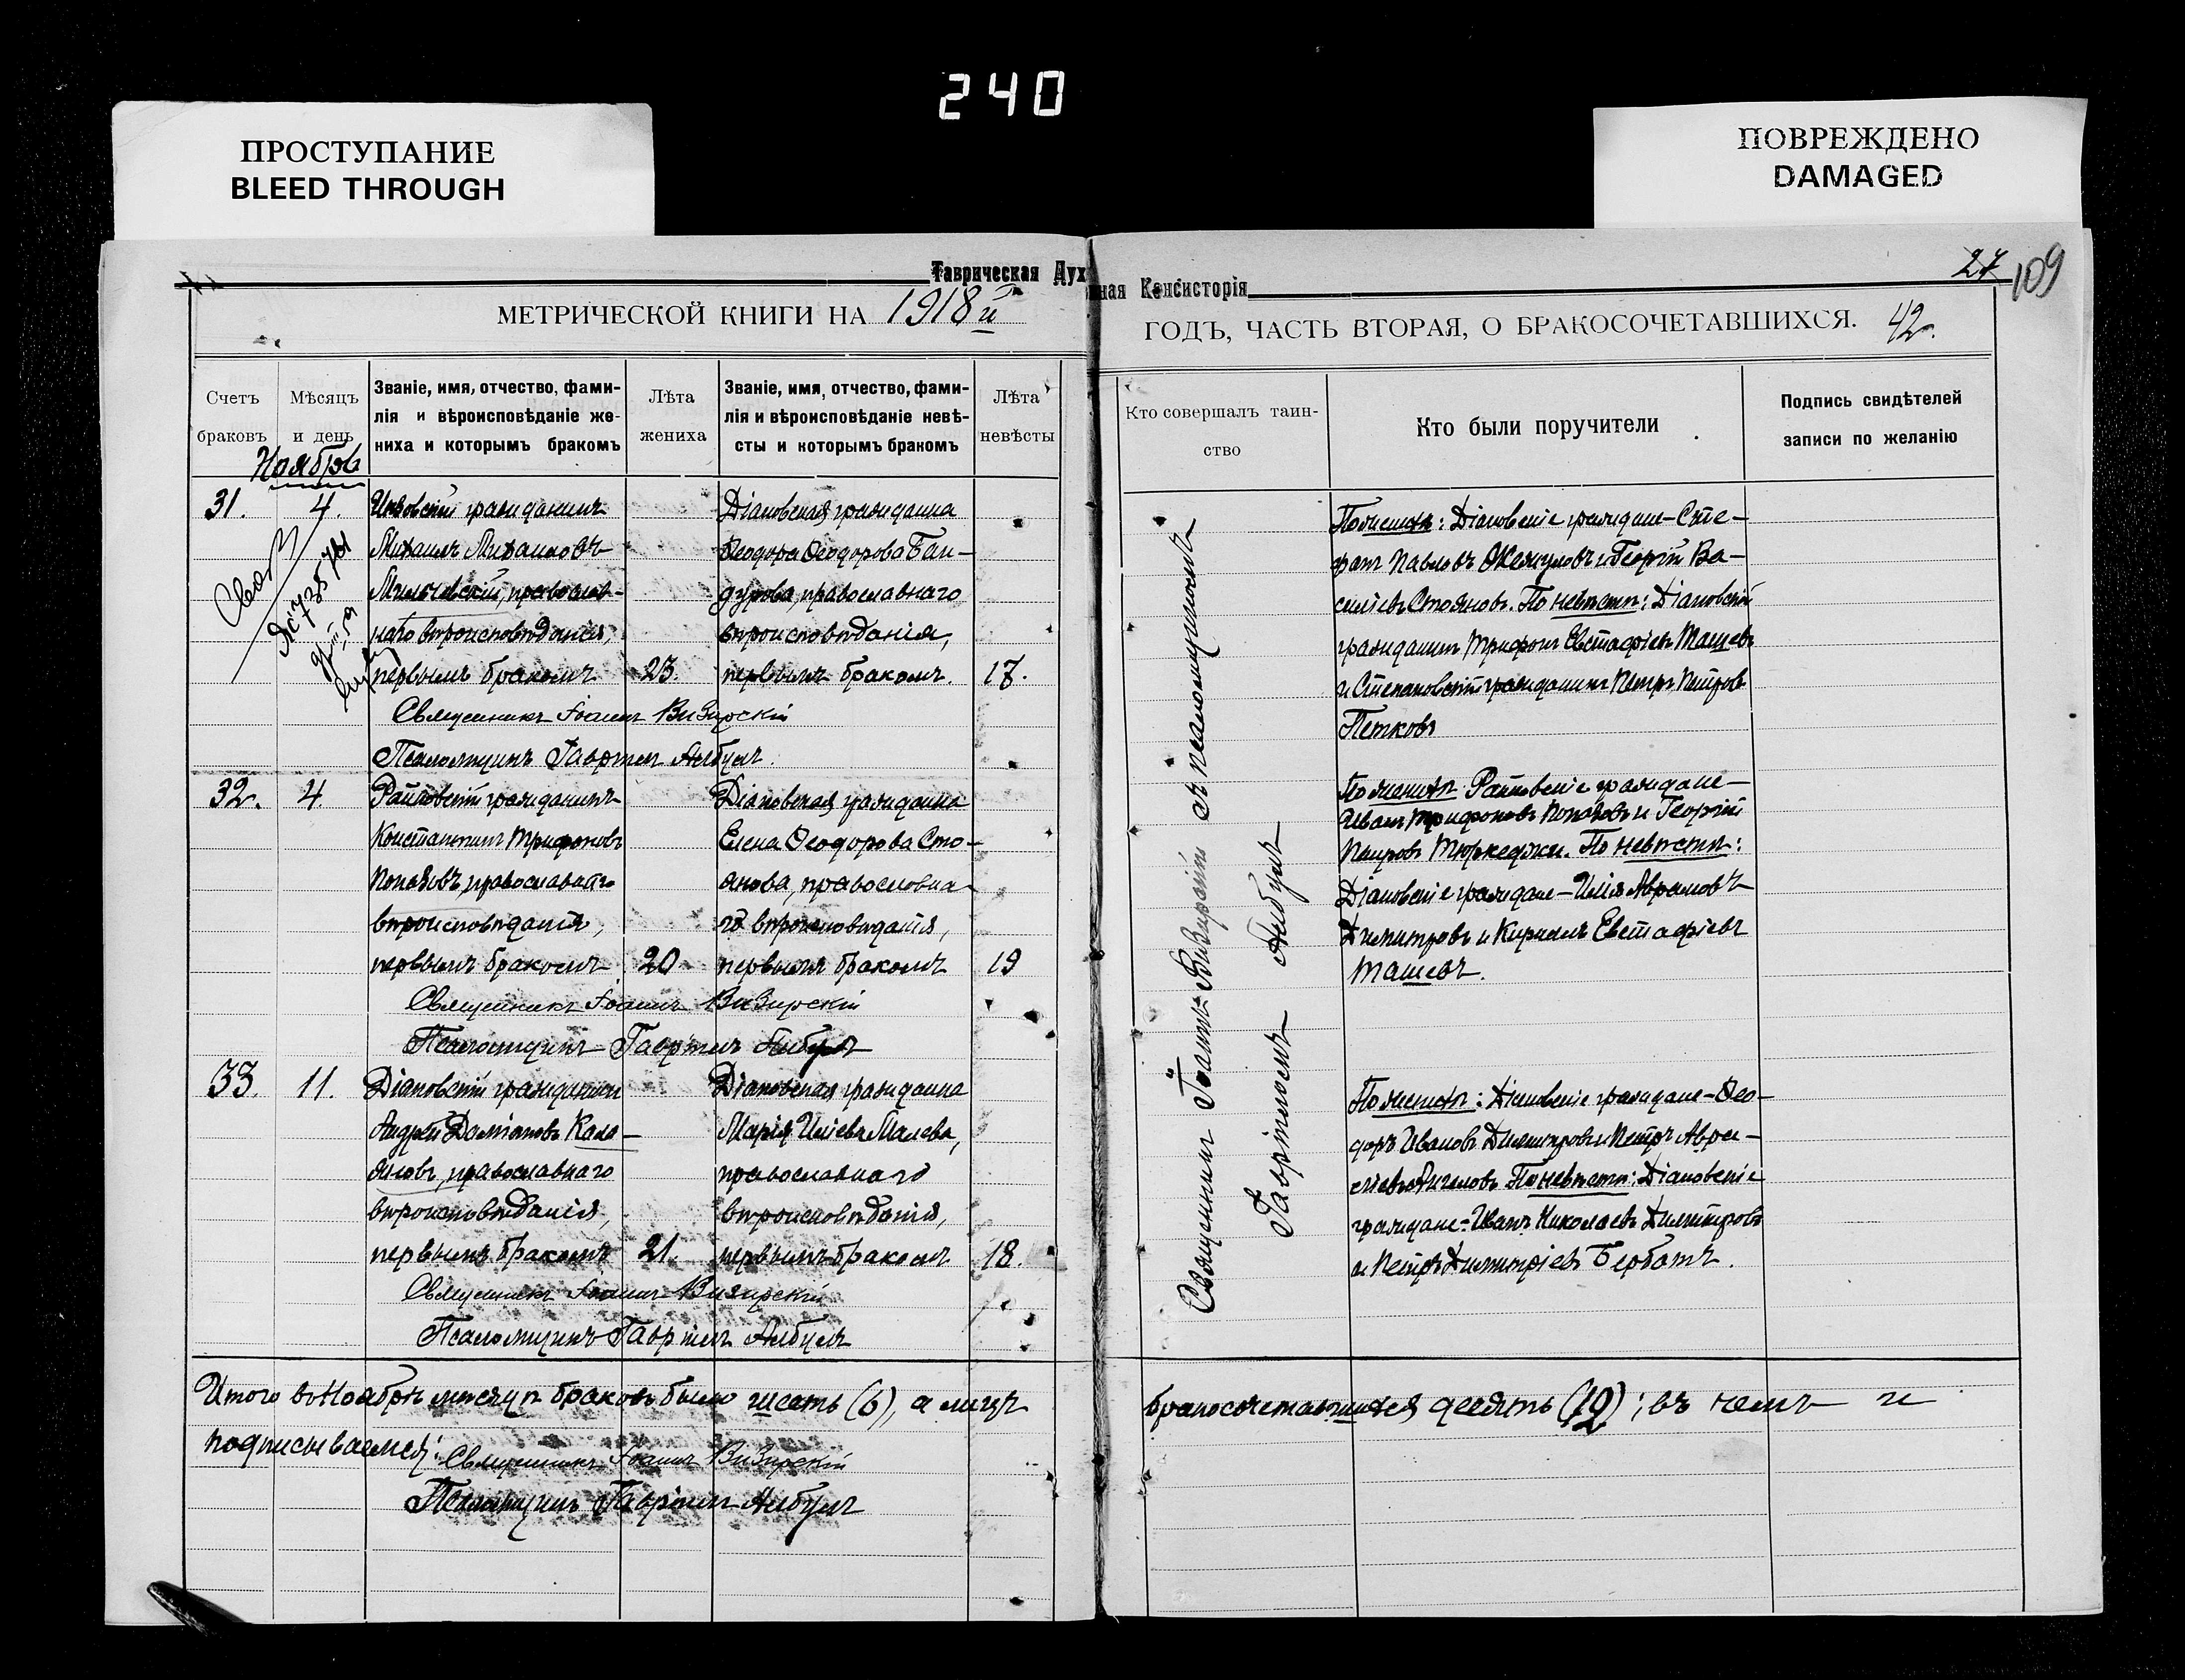 240
ПРОСТУПАНИЕ
BLEED THROUGH
ПОВРЕЖДЕНО
DAMAGED
Таврическая Духовная Консисторія
27 109
МЕТРИЧЕСКОЙ КНИГИ НА 1918й
ГОДЪ, ЧАСТЬ ВТОРАЯ, О БРАКОСОЧЕТАВШИХСЯ. 42.
Счетъ
браковъ
Мѣсяцъ
и день
Званіе, имя, отчество, фами-
лія и вѣроисповѣданіе же-
ниха и которымъ бракомъ
Лѣта
жениха
Званіе, имя, отчество, фами-
лія и вѣроисповѣданіе невѣ-
сты и которымъ бракомъ
Лѣта
невѣсты
Кто совершалъ таин-
ство
Кто были поручители
Подпись свидѣтелей
записи по желанію
Ноябрь
31.
4.
гражданинъ
Михаилъ Михаиловъ
православ-
наго вѣроисповѣданія,
первымъ бракомъ
23.
Діановская гражданка
Ѳеодора Ѳеодорова Бан-
дурова, православнаго
вѣроисповѣданія,
первымъ бракомъ.
17.
Священникъ Іоаннъ Визирскій
Псаломщикъ Гавріилъ Албулъ.
По женихѣ: Діановскіе граждане – Сте-
фанъ Павловъ и Георгій Ва-
сильевъ Стояновъ. По невѣстѣ: Діановскій
гражданинъ Трифонъ Евстафіевъ Ташевъ
и Степановскій гражданинъ Петръ Петровъ
Петковъ
32.
4.
Райновскій гражданинъ
Константинъ Трифоновъ
Попазовъ, православнаго
вѣроисповѣданія,
первымъ бракомъ
20
Діановская гражданка
Елена Ѳеодорова Сто-
янова, православна-
го вѣроисповѣданія,
первымъ бракомъ
19
Священникъ Іоаннъ Визирскій
Псаломщикъ Гавріилъ Албулъ
По женихѣ: Райновскіе граждане –
Иванъ Трифоновъ Попазовъ и Георгій
Петровъ Тюркеджи. По невѣстѣ:
Діановскіе граждане – Илія Аврамовъ
Димитровъ и Кирилъ Евстафіевъ
Ташевъ.
33.
11.
Діановскій гражданинъ
Андрей Даміановъ Кала-
яновъ, православнаго
вѣроисповѣданія,
первымъ бракомъ
21.
Діановская гражданка
Марія Иліева Малева,
православнаго
вѣроисповѣданія,
первымъ бракомъ
18.
Священникъ Іоаннъ Визирскій
Псаломщикъ Гавріилъ Албулъ
По женихѣ: Діановскіе граждане – Ѳео-
доръ Ивановъ Димитровъ и Петръ
По невѣстѣ: Діановскіе
граждане – Иванъ Николаевъ Димитровъ
и Петръ Димитріевъ Бербатъ.
Священникъ Іоаннъ Визирскій съ псаломщикомъ
Гавріиломъ Албулъ
Итого въ Ноябрѣ мѣсяцѣ браковъ было шесть (6), а лицъ
бракосочетавшихся десять (12); въ чемъ и
подписываемся:
Священникъ Іоаннъ Визирскій
Псаломщикъ Гавріилъ Албулъ